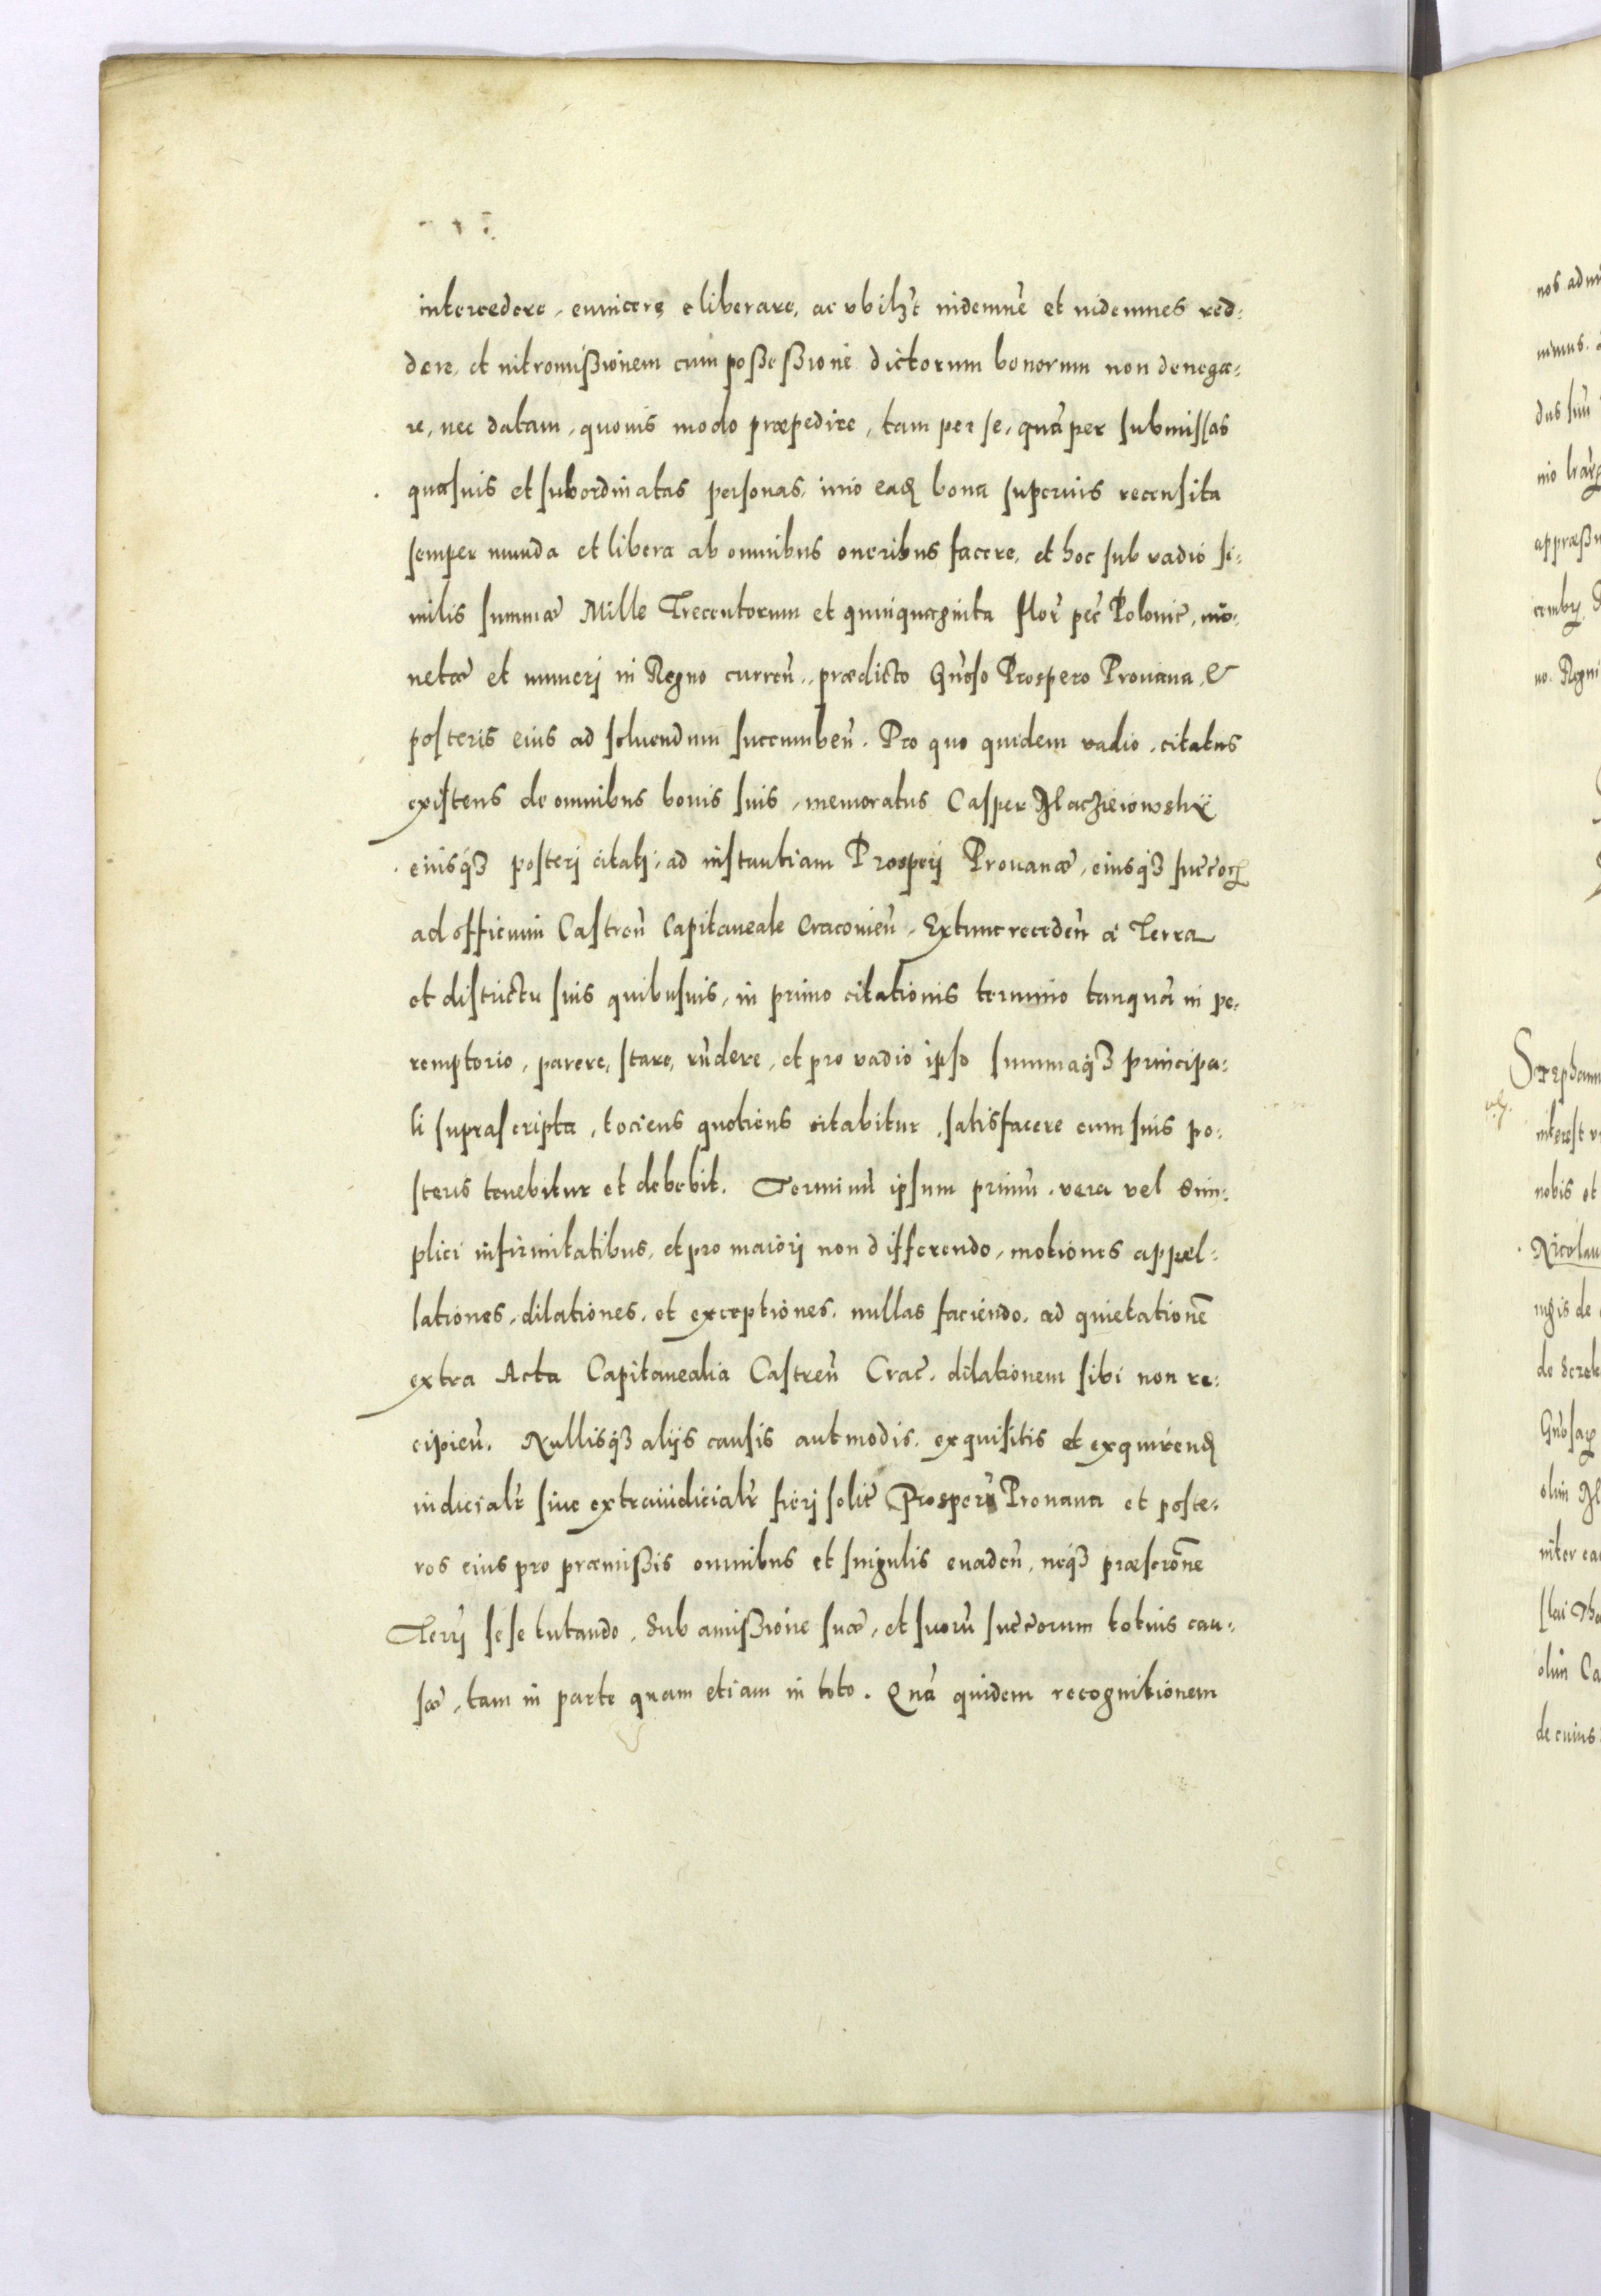 intercedere, euincere, eliberare, ac vbilʒt indemnē et indemnes red-
dere, et intromißionem cum poßeßione dictorum bonorum non denega-
re, nec datam, quouis modo præpedire, tam per se, quā per submissas
quasuis et subordinatas personas, imo eadē bona superius recensita
semper munda et libera ab omnibus oneribus facere, et hoc sub vadio si-
milis summæ Mille Trecentorum et quinquaginta flor̄ pec̄ Polonic̄, mo-
netæ et numerj in Regno curren̄, prædicto Gn̄oso Prospero Prouana, &
posteris eius ad soluendum succumben̄. Pro quo quidem vadio, citatus
existens de omnibus bonis suis, memoratus Casper
eiusqȝ posterj citatj, ad instantiam Prosperj Prouanæ, eiusqȝ succ̄orꝝ
ad officium Castren̄ Capitaneale Cracouien̄, Extunc receden̄ a Terra
et districtu suis quibusuis, in primo citationis termino tanquā in pe-
remptorio, parere, stare, rn̄dere, et pro vadio ipso summaqȝ principa-
li suprascripta, tociens quotiens citabitur, satisfacere cum suis po-
steris tenebitur et debebit. Terminū ipsum primū, vera vel sim-
plici infirmitatibus, et pro maiorj non differendo, motiones appel-
lationes, dilationes, et exceptiones, nullas faciendo, ad quietationē
extra Acta Capitanealia Castren̄ Crac̄, dilationem sibi non re-
cipien̄. Nullisqȝ alijs causis aut modis, exquisitis et exquirendꝭ
iudicialr̄ siue extraiudicialr̄ fierj solit̄ Prosperū Prouana et poste-
ros eius pro præmißis omnibus et singulis euaden̄, neqȝ præscr̄one
Terrj sese tutando, Sub amißione suæ, et suorū succ̄orum totius cau-
sæ, tam in parte quam etiam in toto. Quā quidem recognitionem